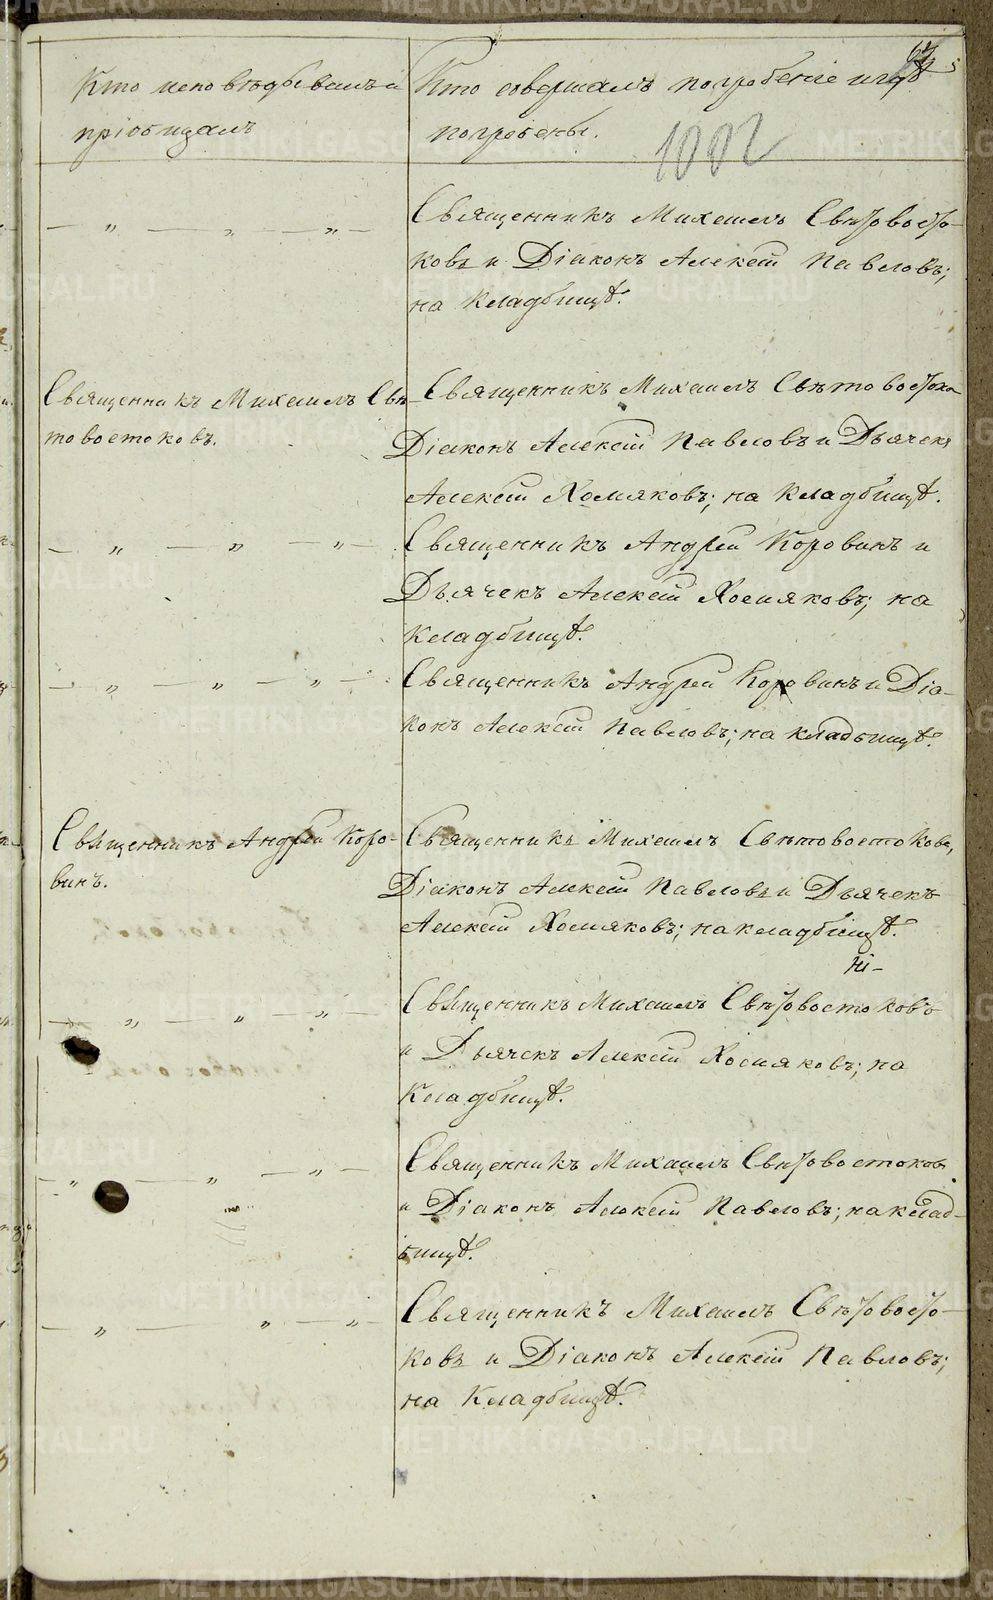 Кто исповѣдывалъ и
пріобщалъ
Кто совершалъ погребеніе и гдѣ
погребены.
1002
— „ — „ — „ —
Священникъ Михаилъ Свѣтовосто-
ковъ и Діаконъ Алексѣй Павловъ;
на кладбищѣ.
Священникъ Михаилъ Свѣ-
товостоковъ.
Священникъ Михаилъ Свѣтовостоко
Діаконъ Алексѣй Павловъ и Дьячекъ
Алексѣй Хомяковъ; на кладбищѣ.
— „ — „ — „ —
Священникъ Андрей Коровинъ и
Дьячекъ Алексѣй Хомяковъ; на
кладбищѣ.
— „ — „ — „ —
Священникъ Андрей Коровинъ и Діа-
конъ Алексѣй Павловъ; на кладбищѣ.
Священникъ Андрей Коро-
винъ.
Священникъ Михаилъ Свѣтовостоковъ,
Діаконъ Алексѣй Павловъ и Дьячекъ
Алексѣй Хомяковъ; на кладбищѣ.
Ні-
— „ — „ — „ —
Священникъ Михаилъ Свѣтовостоковъ
и Дьячекъ Алексѣй Хомяковъ; на
кладбищѣ.
— „ — „ — „ —
Священникъ Михаилъ Свѣтовостоковъ
и Діаконъ Алексѣй Павловъ; на клад-
бищѣ.
— „ — „ — „ —
Священникъ Михаилъ Свѣтовосто-
ковъ и Діаконъ Алексѣй Павловъ;
на кладбищѣ.
METRIKI.GASO-URAL.RU